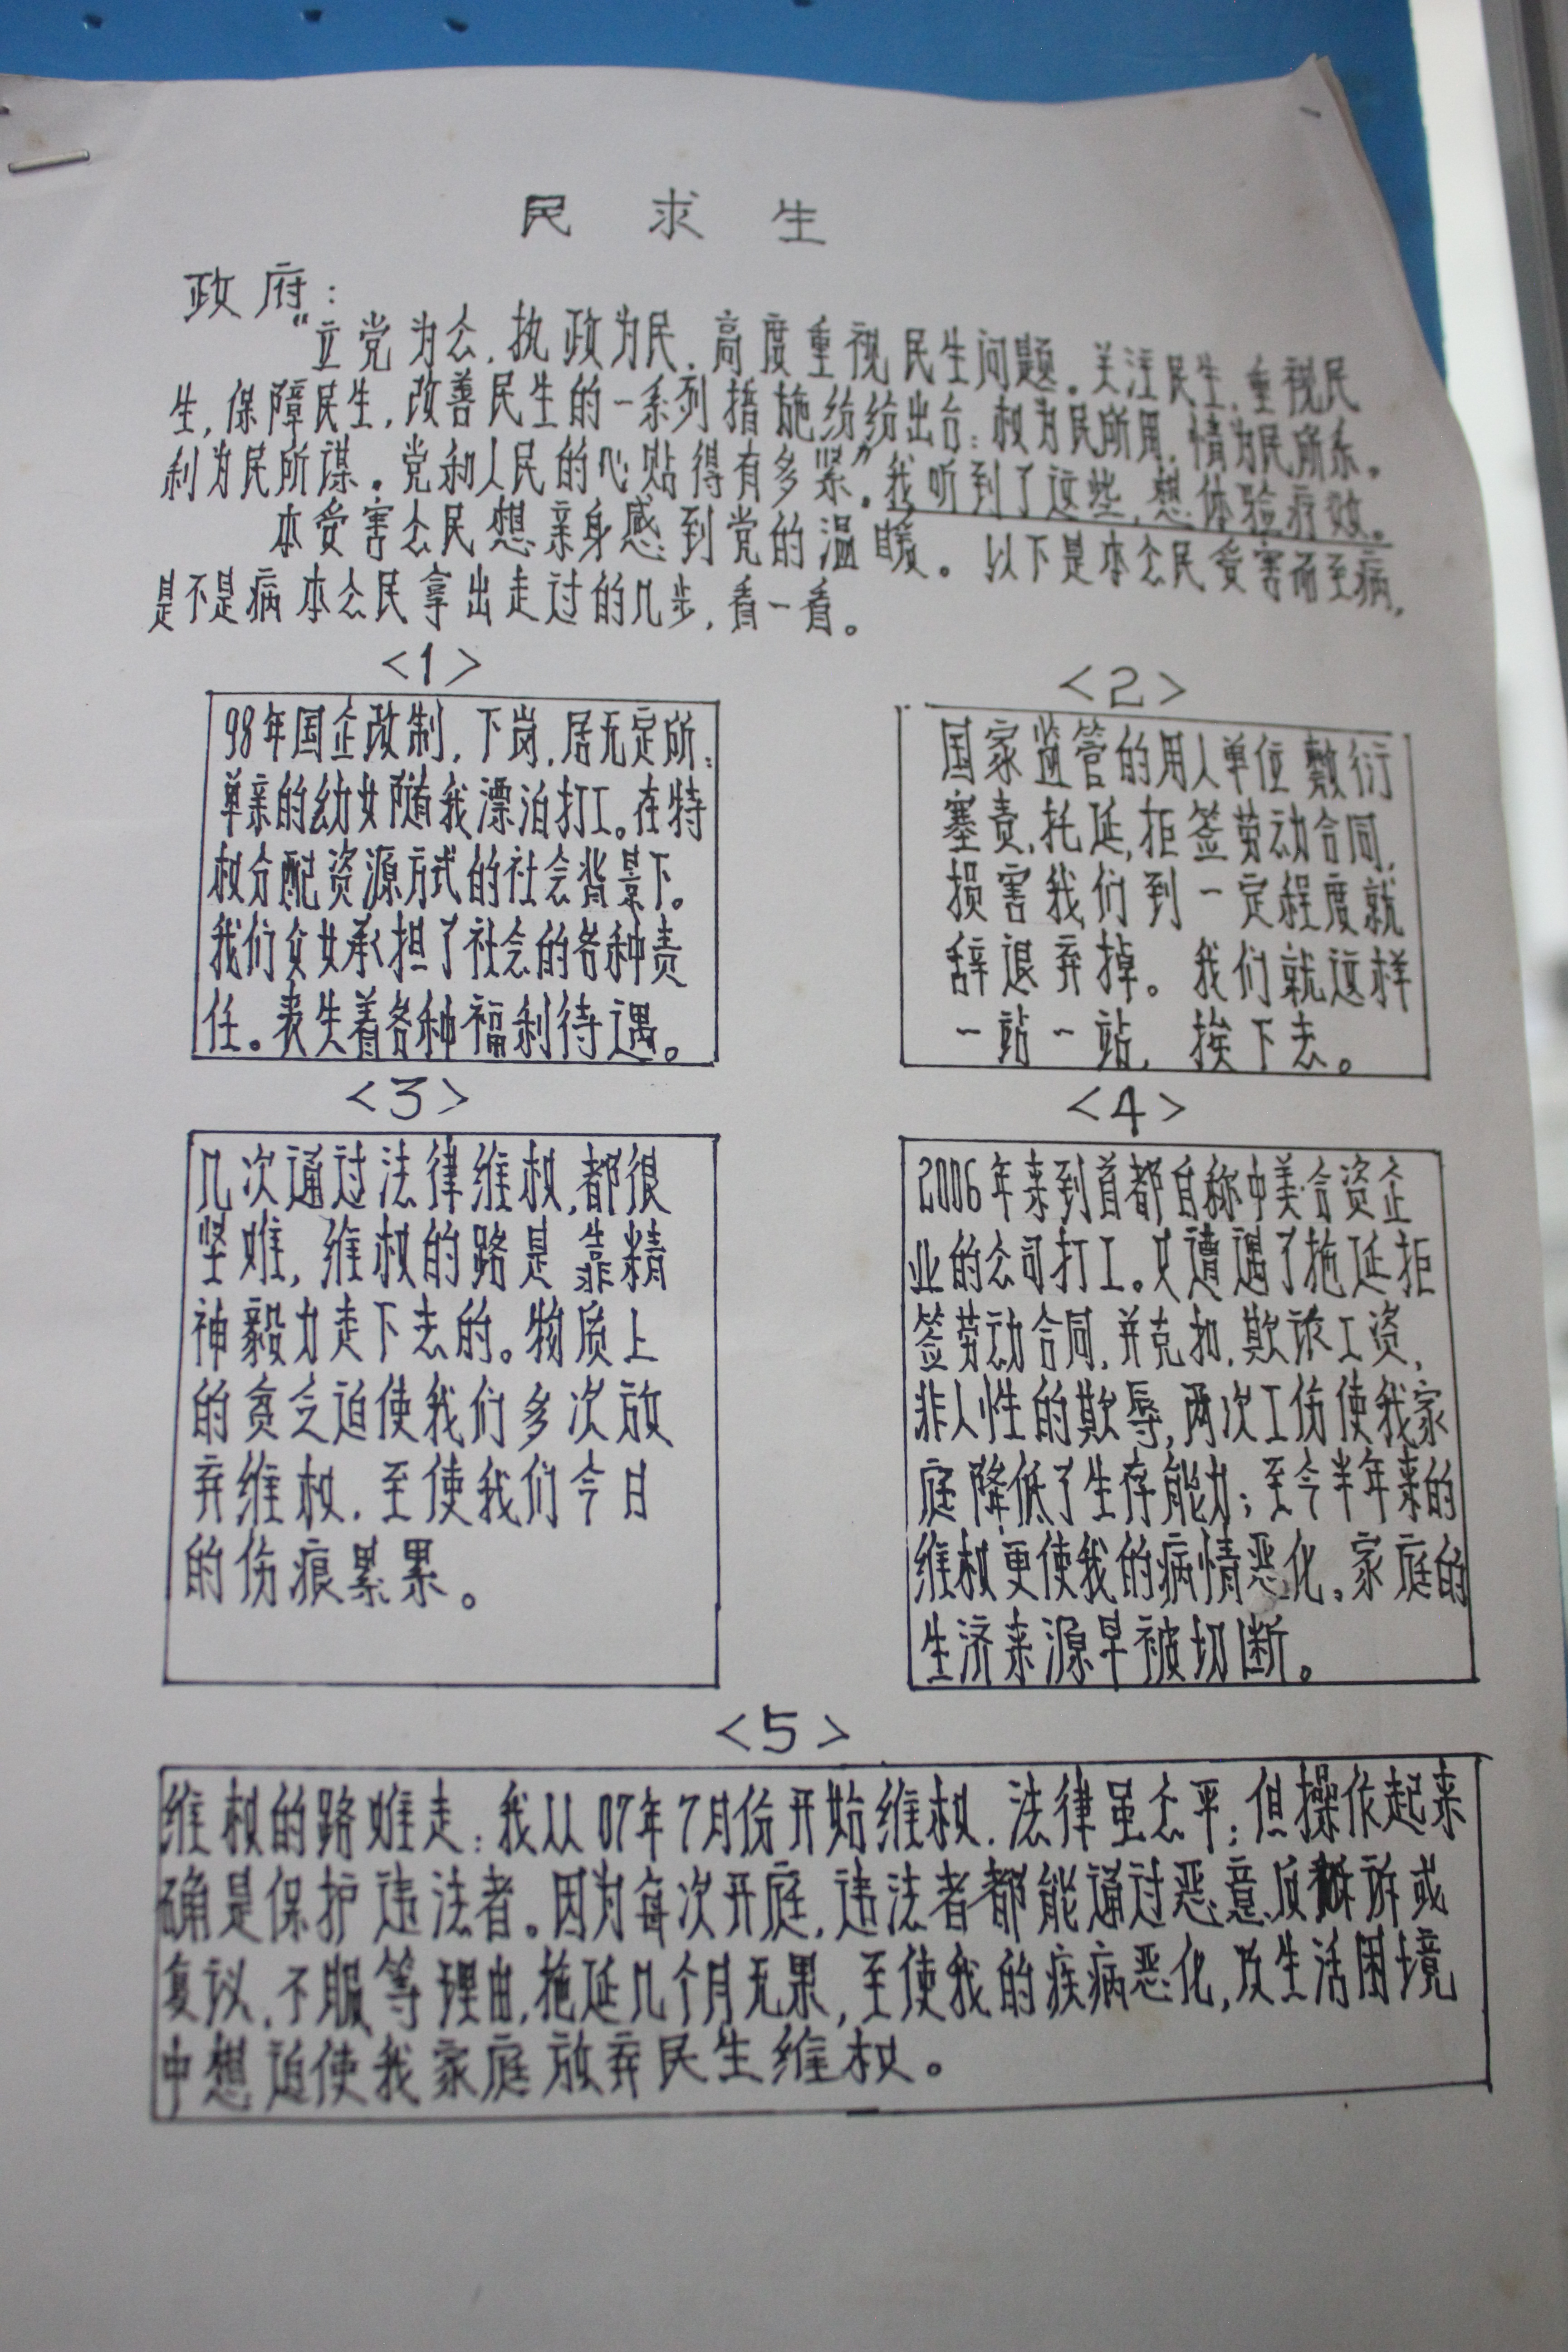 民求生
政府：
“立党为公，执政为民，高度重视民生问题。关注民生，重视民
生，保障民生，改善民生的一系列措施纷纷出台：权为民所用，情为民所系。
利为民所谋。党和人民的心贴得有多紧”。我听到了这些，想体验疗效。
本受害公民想亲身感到党的温暖。以下是本公民受害而至病，
是不是病本公民拿出走过的几步，看一看。
<1>
98年国企改制，下岗，居无定所：
单亲的幼女随我漂泊打工。在特
权分配资源方式的社会背景下。
我们父女承担了社会的各种责
任。丧失着各种福利待遇。
<2>
国家监管的用人单位敷衍
塞责，托延，拒签劳动合同，
损害我们到一定程度就
辞退弃掉。我们就这样
一站一站，挨下去。
<3>
几次通过法律维权，都很
坚难，维权的路是靠精
神毅力走下去的。物质上
的贫乏迫使我们多次放
弃维权，至使我们今日
的伤痕累累。
<4>
2006年来到首都自称中美合资企
业的公司打工。又遭遇了拖延拒
签劳动合同，并克扣，欺诈工资，
非人性的欺辱，两次工伤使我家
庭降低了生存能力；至今半年来的
维权更使我的病情恶化。家庭的
生济来源早被切断。
<5>
维权的路难走：我从07年7月份开始维权，法律虽公平；但操作起来
确是保护违法者。因为每次开庭，违法者都能通过恶意反诉或
复议，不服等理由，拖延几个月无果，至使我的疾病恶化，及生活困境
中想迫使我家庭放弃民生维权。